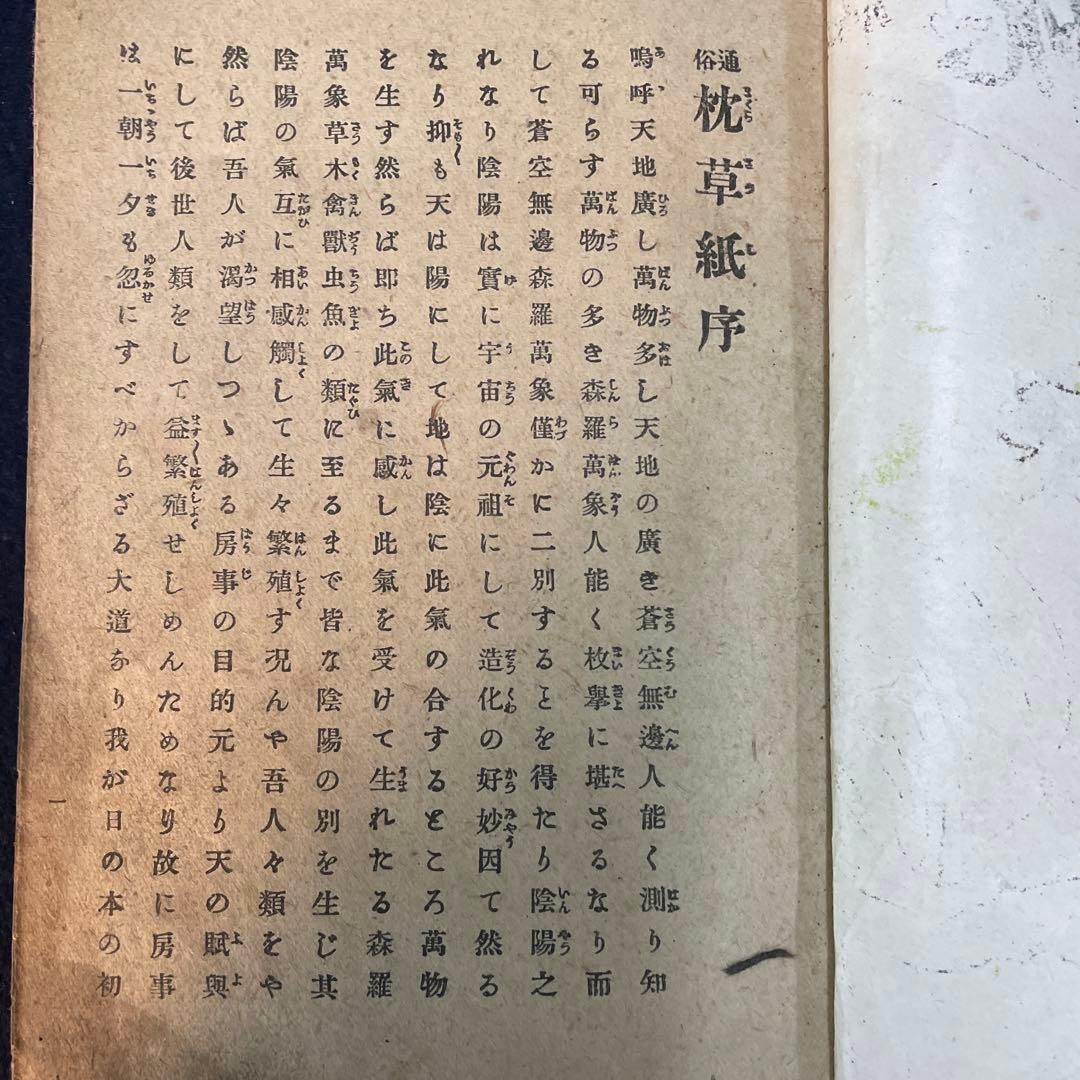 通俗 枕草紙序
嗚呼天地廣し萬物多し天地の廣き蒼空無邊人能く測り知
る可らす萬物の多き森羅萬象人能く枚擧に堪さるなり而
して蒼空無邊森羅萬象僅かに二別することを得たり陰陽之
れなり陰陽は實に宇宙の元祖にして造化の好妙因て然る
なり抑も天は陽にして地は陰に此氣の合するところ萬物
を生す然らば即ち此氣に感し此氣を受けて生れたる森羅
萬象草木禽獸虫魚の類に至るまで皆な陰陽の別を生じ其
陰陽の氣互に相感觸して生々繁殖す况んや吾人々類をや
然らば吾人が渇望しつゝある房事の目的元より天の賦與
にして後世人類をして益繁殖せしめんためなり故に房事
は一朝一夕も忽にすべからざる大道なり我が日の本の初
一